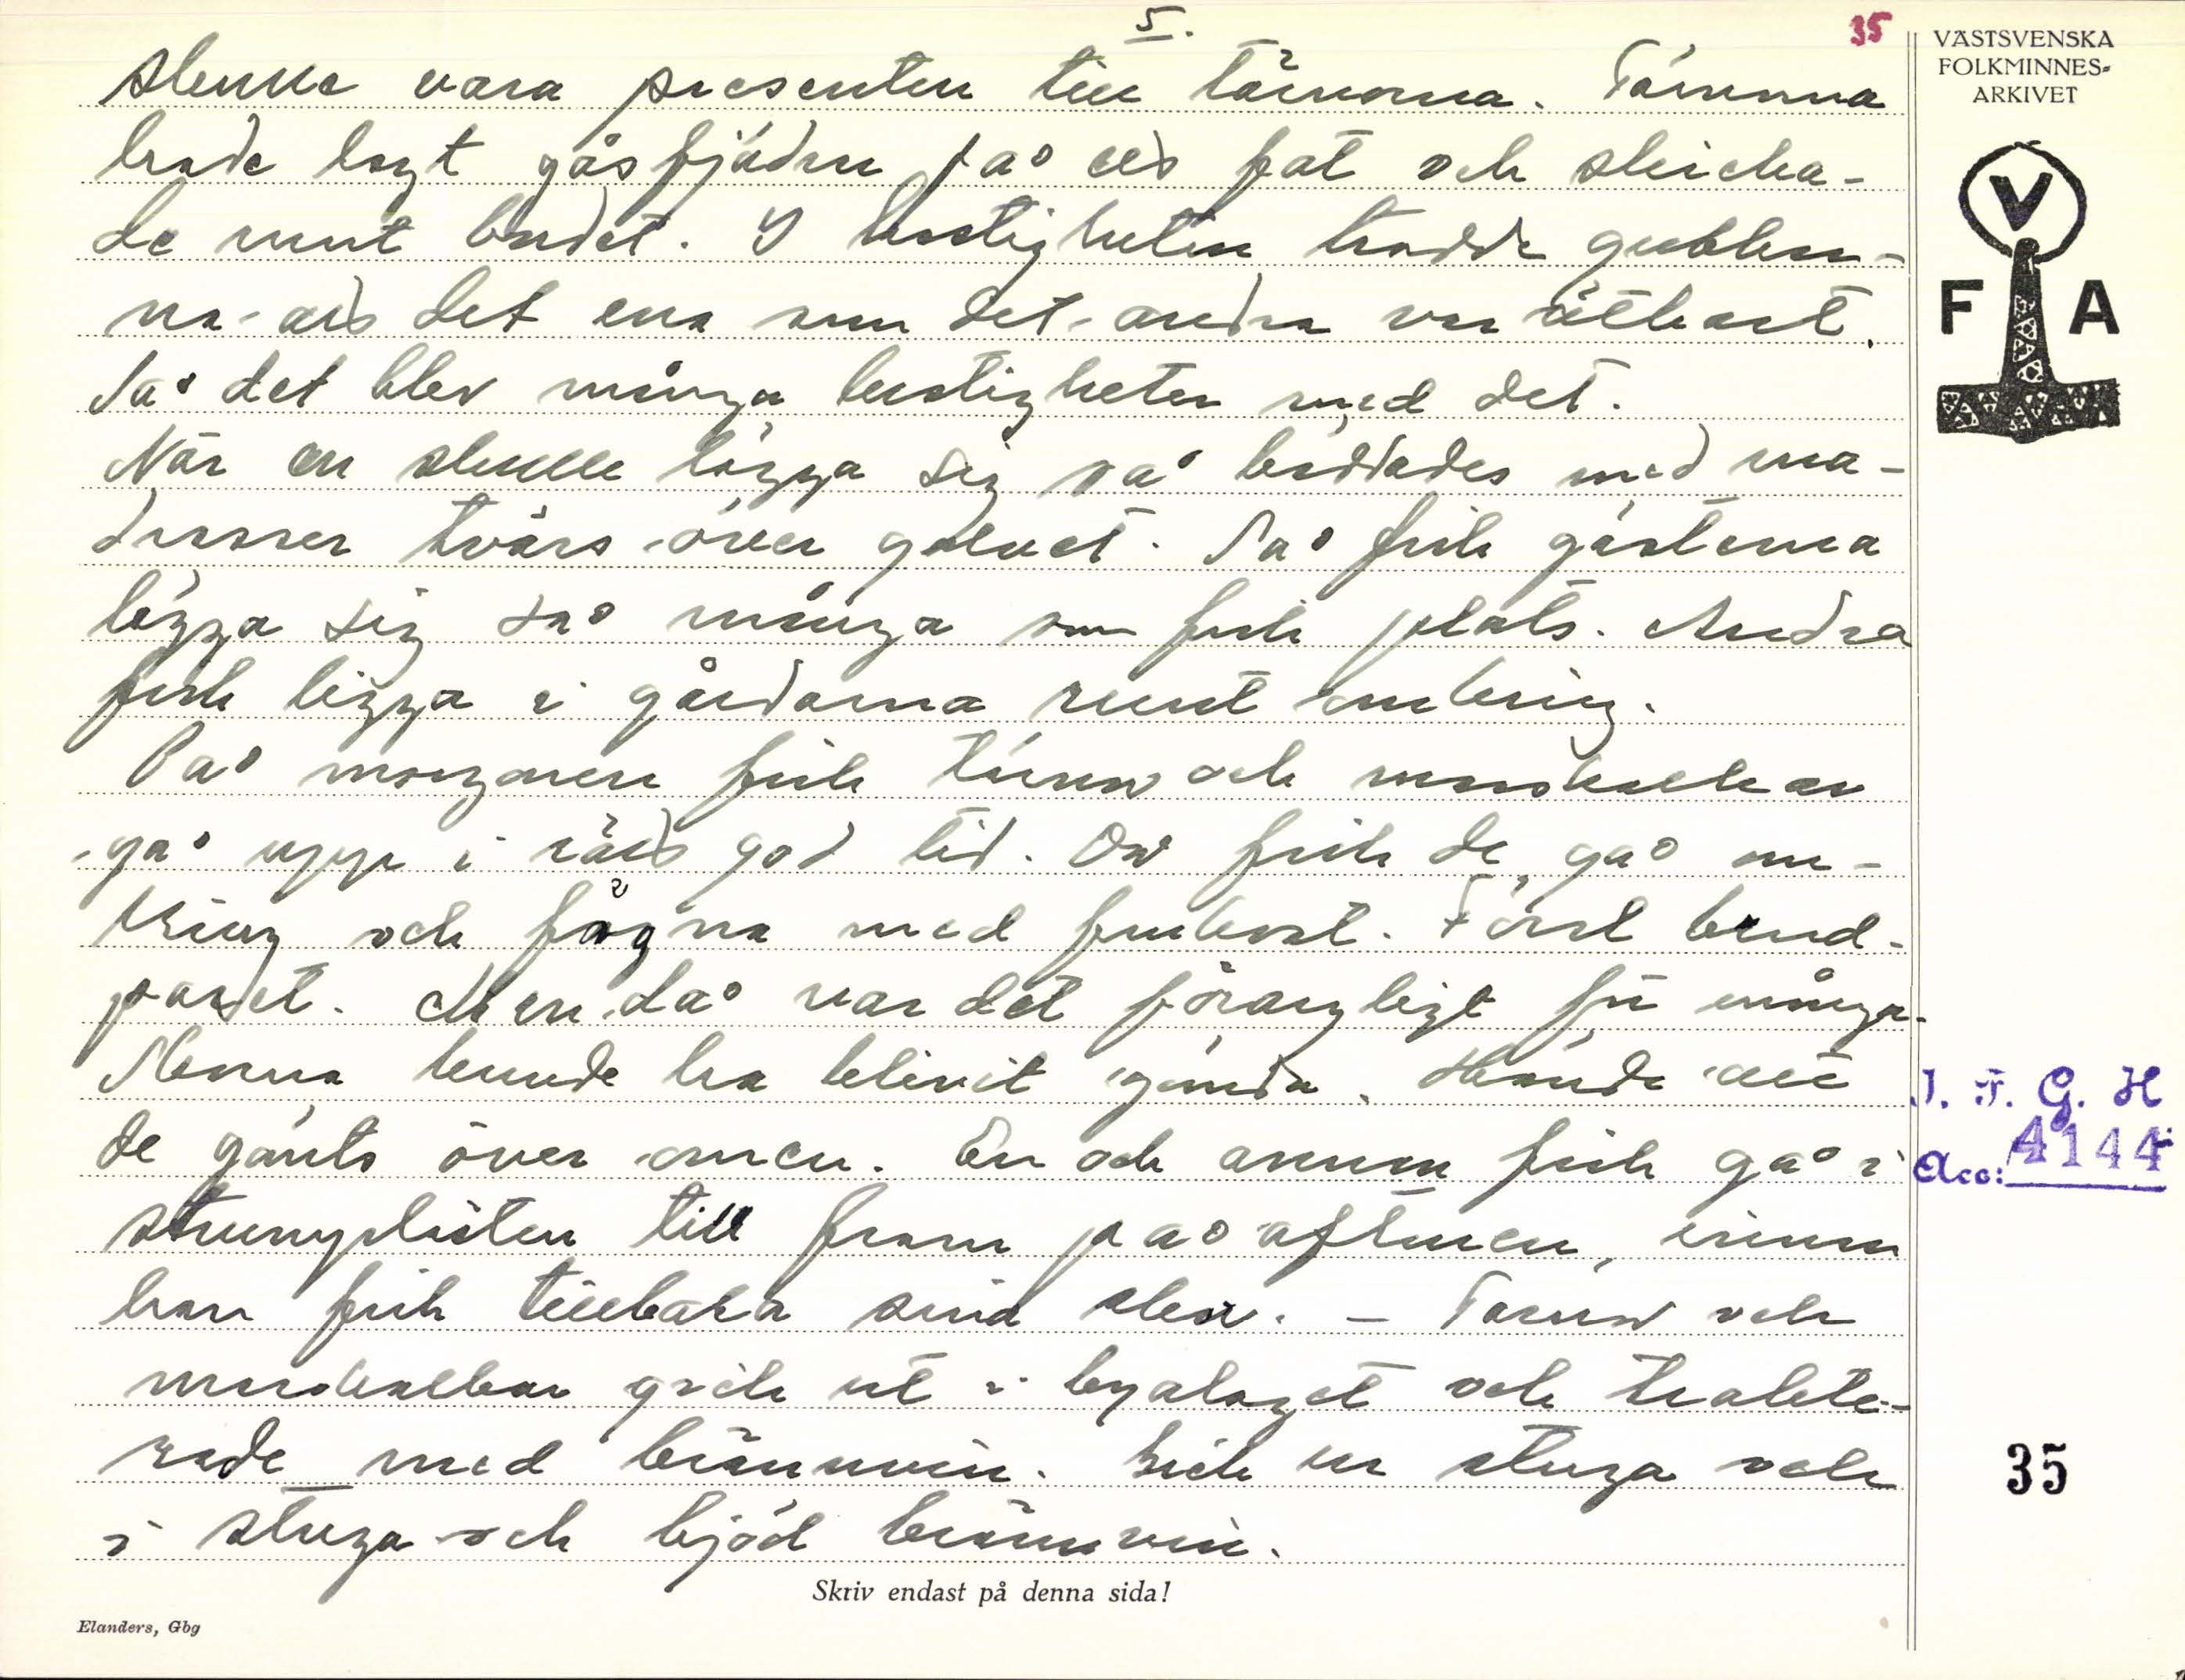 5.
35
VÄSTSVENSKA
FOLKMINNES-
ARKIVET
V
F A
skulle vara presenten till tärnorna. Tärnorna
hade lagt gåsfjädrar på ett fat och skicka-
de runt bordet. I hastigheten trodde gubbar-
na att det ena som det andra var ätbart.
Så det blev många lustigheter med det.
När en skulle lägga sig så bäddades med ma-
drasser tvärs över golvet. Så fick gästerna
lägga sig så många som fick plats. Andra
fick ligga i gårdarna runt omkring.
På morgonen fick tärnor och munskalkar
gå upp i rätt god tid. Då fick de gå om-
kring och fägna med frukost. Först brud-
paret. Men då var det förargligt för många.
Skorna kunde ha blivit gömda. Hände att
de gänts över ånen. En och annan fick gå i
strumplästen till fram på aftonen, innan
han fick tillbaka sina skor. – Tärnor och
munskalkar gick ut i byalaget och trakte-
rade med brännvin. Gick ur stuga och
i stuga och bjöd brännvin.
I. F. G. H
Acc: 4144
35
Skriv endast på denna sida!
Elanders, Gbg